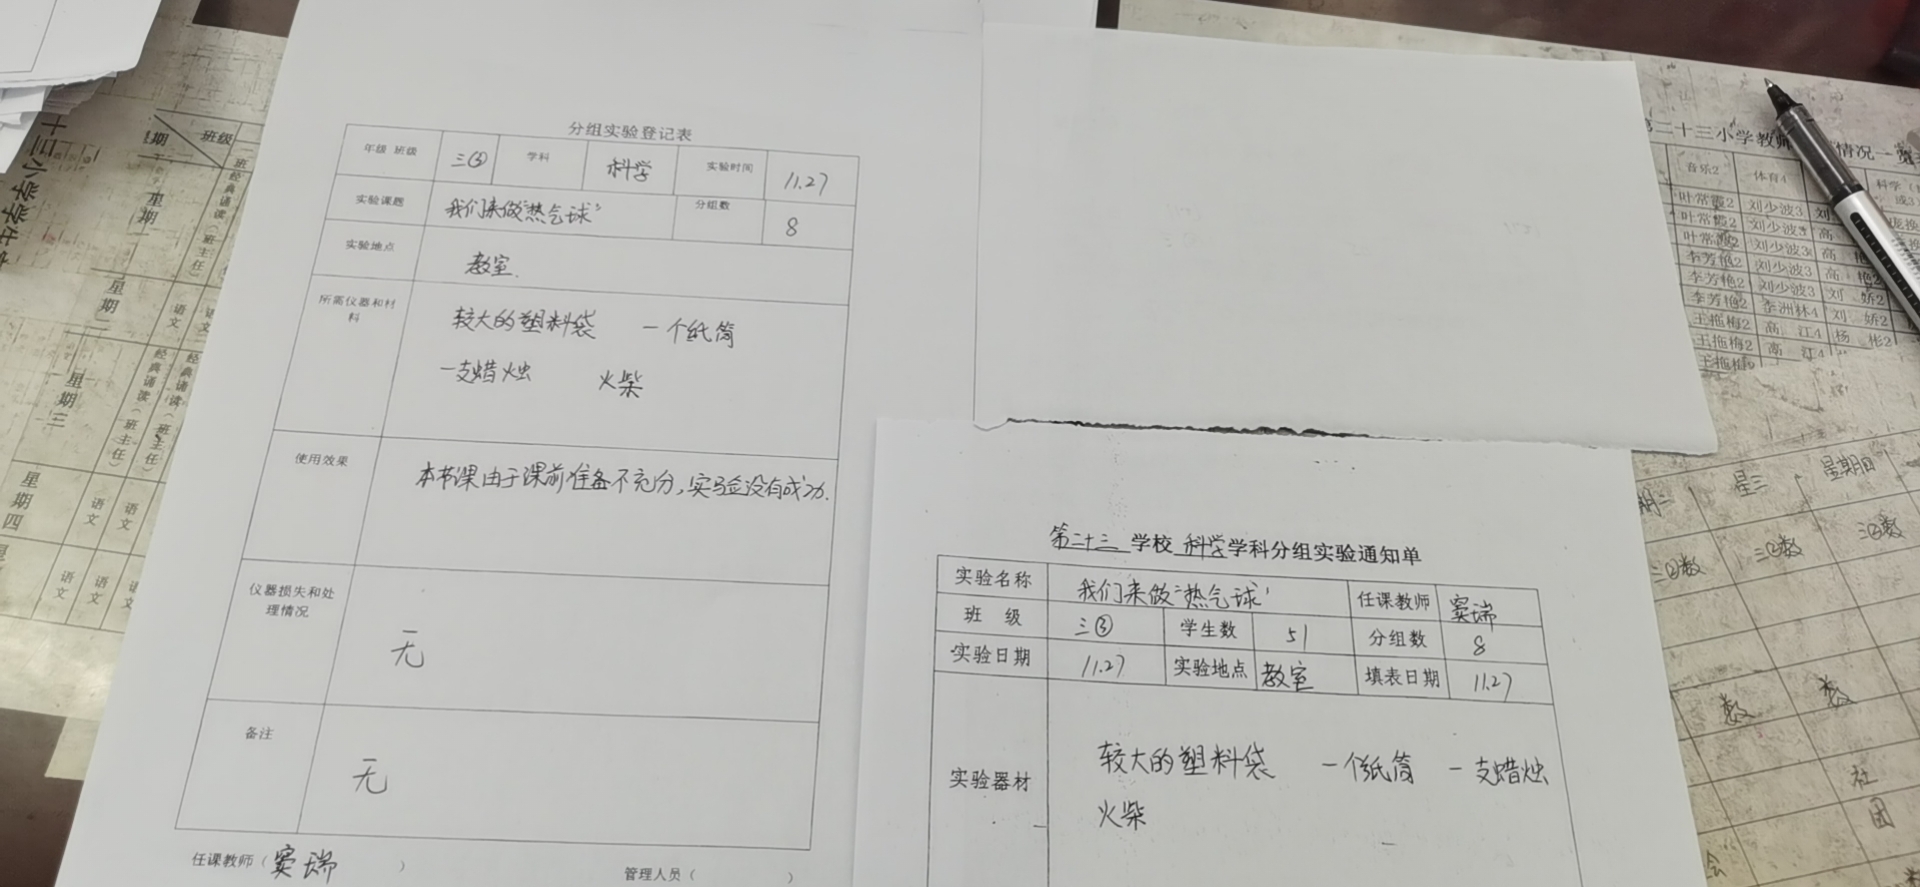 分组实验登记表
年级 班级 三③ 学科 科学 实验时间 11.27
实验课题 我们来做“热气球” 分组数 8
实验地点 教室.
所需仪器和材料 较大的塑料袋 一个纸筒
一支蜡烛 火柴
使用效果 本节课由于课前准备不充分,实验没有成功.
仪器损失和处理情况 无
备注 无
任课教师( 窦瑞 ) 管理人员( )
第二十三 学校 科学 学科分组实验通知单
实验名称 我们来做“热气球” 任课教师 窦瑞
班 级 三③ 学生数 51 分组数 8
实验日期 11.27 实验地点 教室 填表日期 11.27
实验器材 较大的塑料袋 一个纸筒 一支蜡烛
火柴
十三小学学生
星期 班级
经典诵读(班主任)
星期
星期二
星期三
星期四
语文 语文
经典诵读(班主任) 经典诵读(班主任)
语文 语文
语文 语文
二十三小学教师 情况一览
音乐2 体育4 科学
叶常霞2 刘少波3
叶常霞2 刘少波3 高
叶常霞2 刘少波3 高 艳2
李芳艳2 刘少波3 高 艳2
李芳艳2 刘少波3 刘 娇2
李芳艳2 李洲林4 刘 娇2
王拖梅2 高 江4 杨 彬2
王拖梅2 高 江4
王拖梅2
星三 星期四
三②数 三②数 三②数
数 数
社团